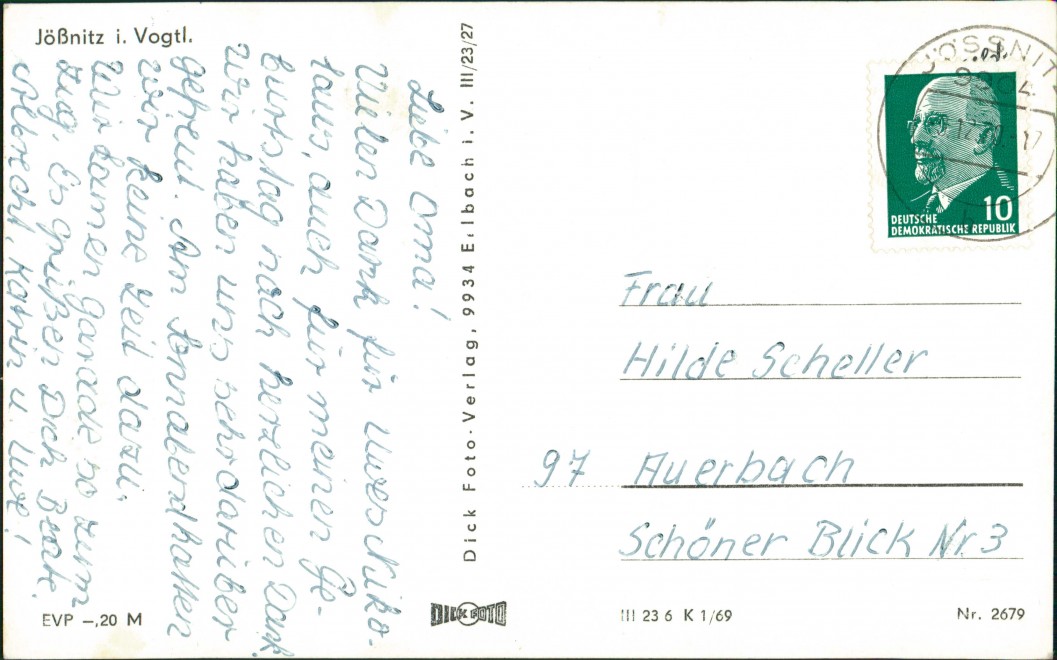 Jößnitz i. Vogtl.
Liebe Oma!
Vielen Dank für Uwes Niko-
laus, auch für meinen Ge-
burtstag noch herzlichen Dank.
Wir haben uns sehr darüber
gefreut. Am Sonnabend hatten
wir keine Zeit dazu.
Wir kamen gerade so zum
Zug. Es grüßen Dich Beate,
Volbrecht, Katrin u. Uwe!
EVP –,20 M
Dick Foto-Verlag, 9934 Eilbach i. V. III/23/27
DICK FOTO
JÖSSNITZ
9904
DEUTSCHE
DEMOKRATISCHE REPUBLIK
10
Frau
Hilde Scheller
97 Auerbach
Schöner Blick Nr. 3
III 23 6 K 1/69
Nr. 2679